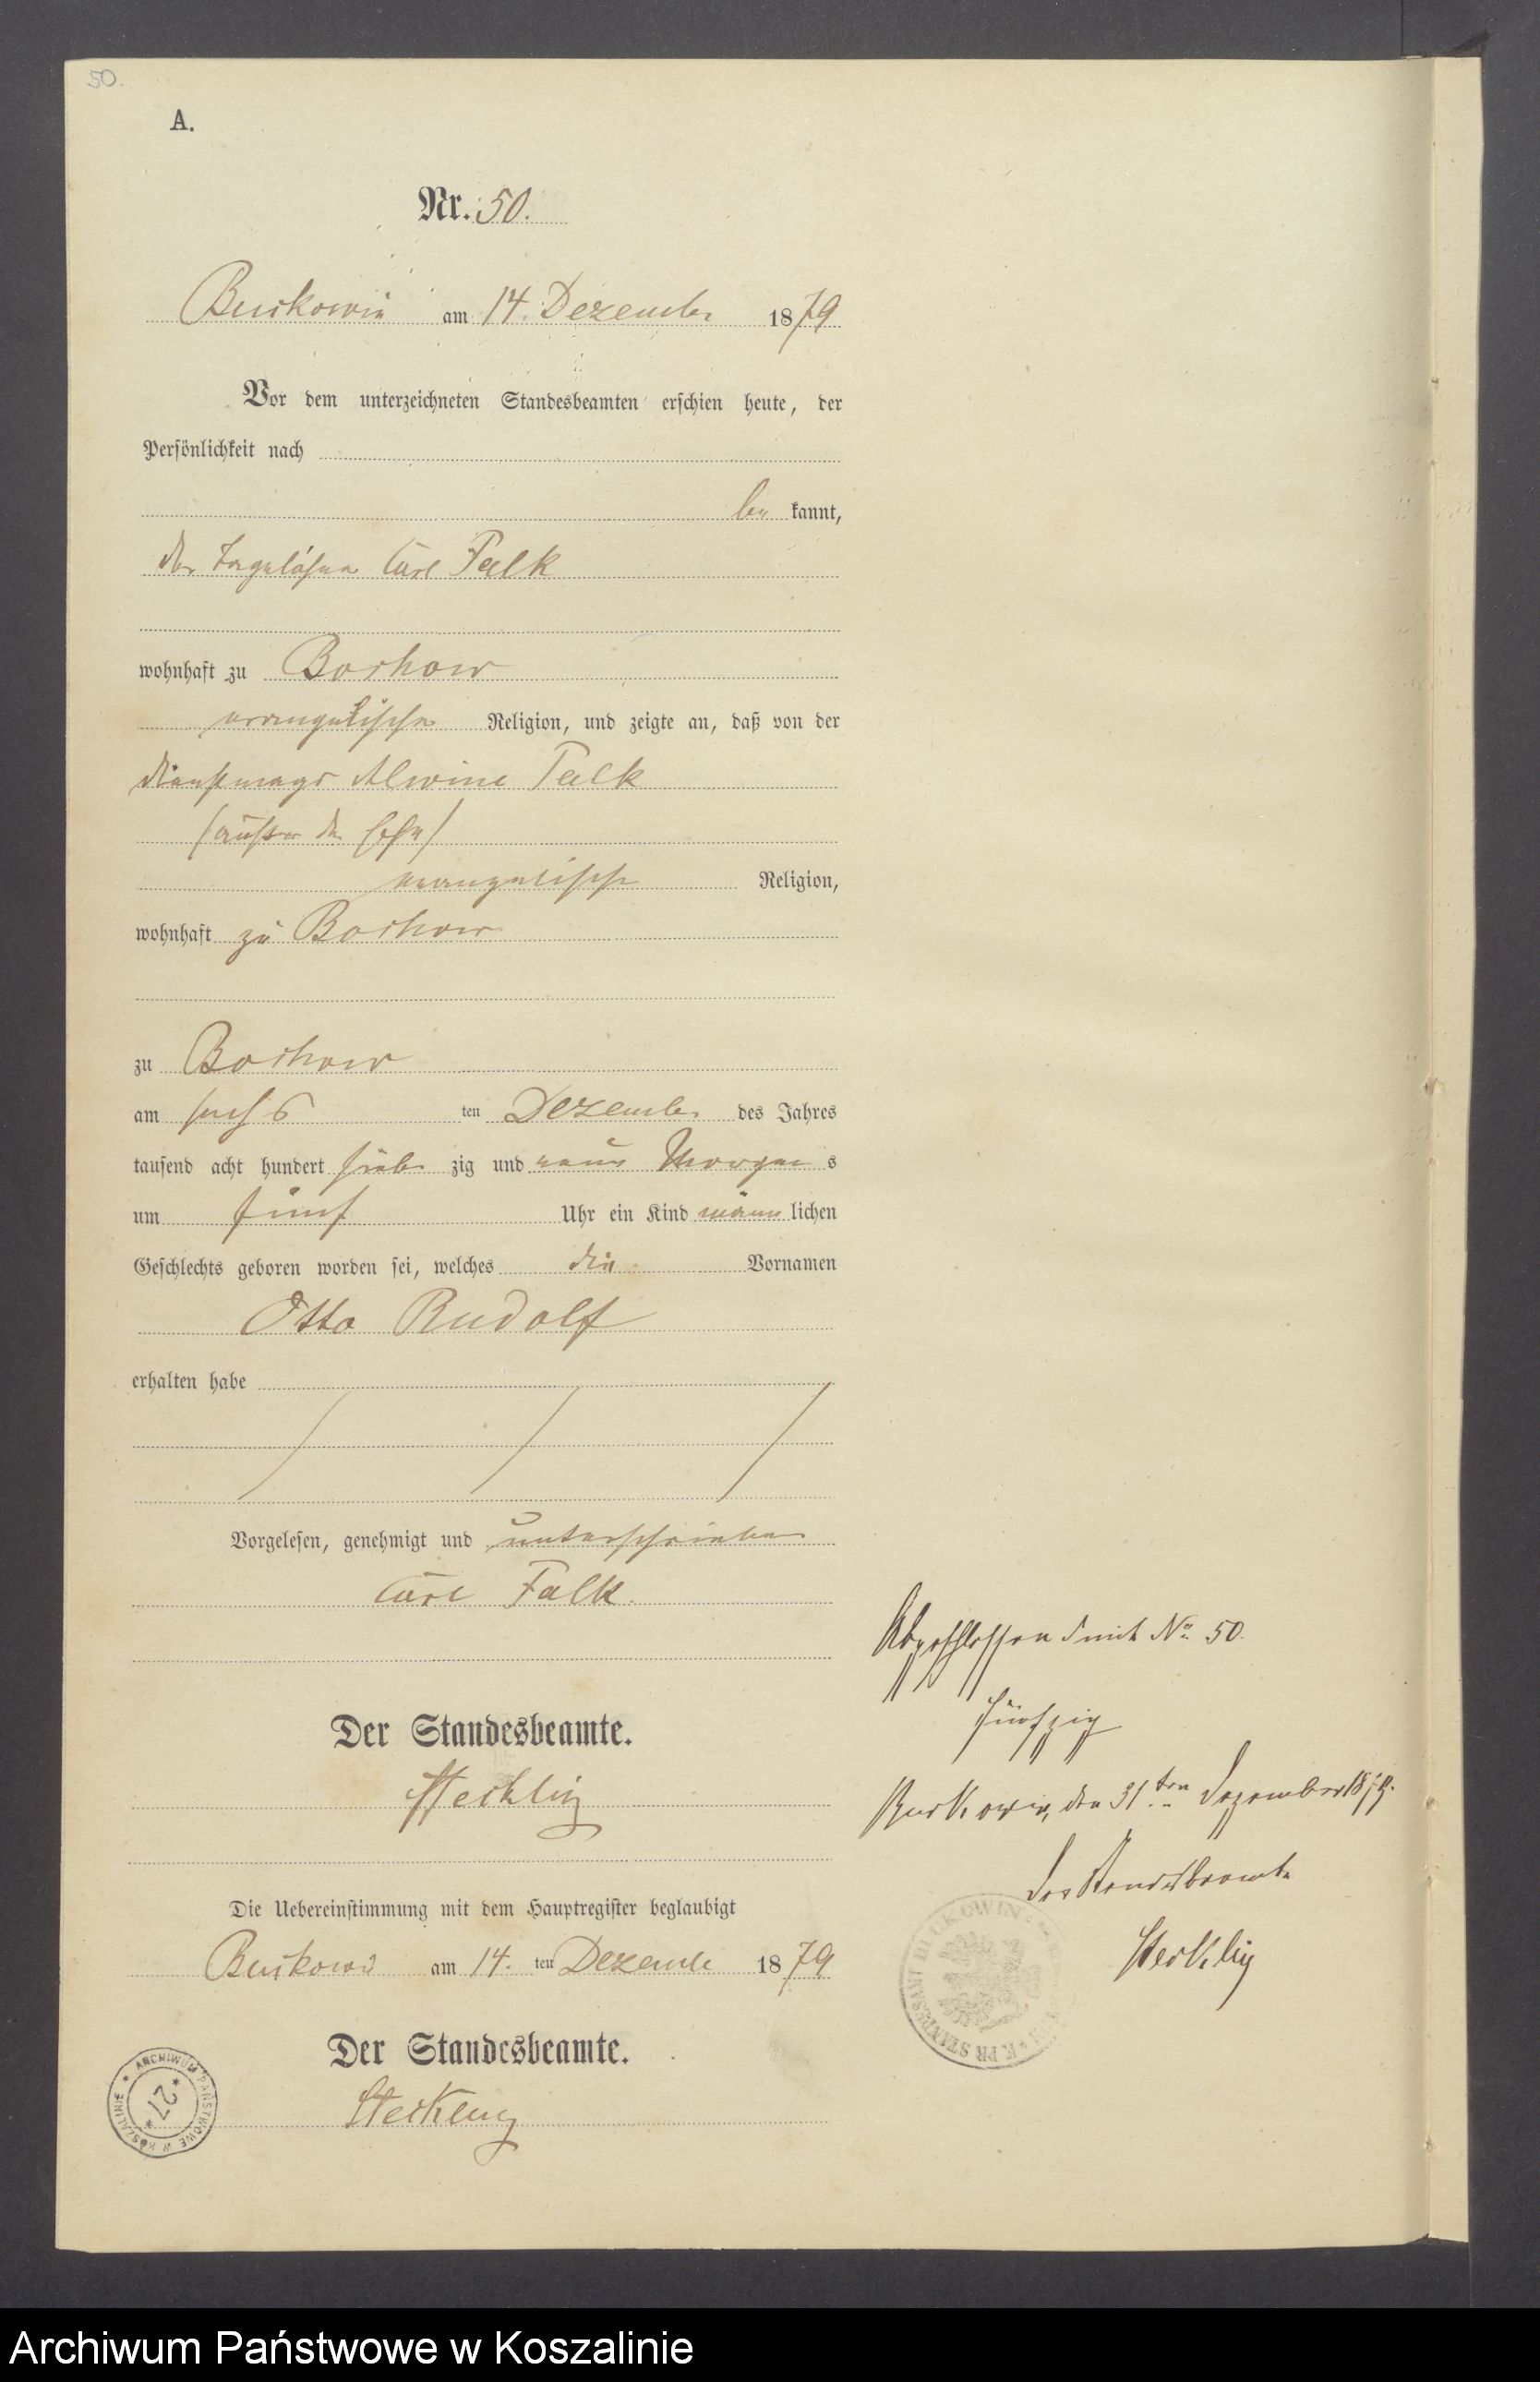 50.
A.
Nr. 50.
Buckowin am 14. Dezember 1879
Vor dem unterzeichneten Standesbeamten erschien heute, der
Persönlichkeit nach
be kannt,
der Tagelöhner Carl Falk
wohnhaft zu Bochow
evangelischer Religion, und zeigte an, daß von der
Dienstmagd Alwine Falk
(außer der Ehe)
evangelischer Religion,
wohnhaft zu Bochow
zu Bochow
am sechs ten Dezember des Jahres
tausend acht hundert sieb zig und neun Morgen s
um fünf Uhr ein Kind männ lichen
Geschlechts geboren worden sei, welches die Vornamen
Otto Rudolf
erhalten habe
Vorgelesen, genehmigt und unterschrieben
Carl Falk.
Der Standesbeamte.
Steckling
Die Uebereinstimmung mit dem Hauptregister beglaubigt
Buckowin am 14. ten Dezember 1879
Der Standesbeamte.
Steckling
Abgeschlossen mit No 50.
fünfzig
Buckowin, den 31ten Dezember 1879.
Der Standesbeamte
Steckling
ARCHIWUM PAŃSTWOWE W KOSZALINIE
27
Archiwum Państwowe w Koszalinie